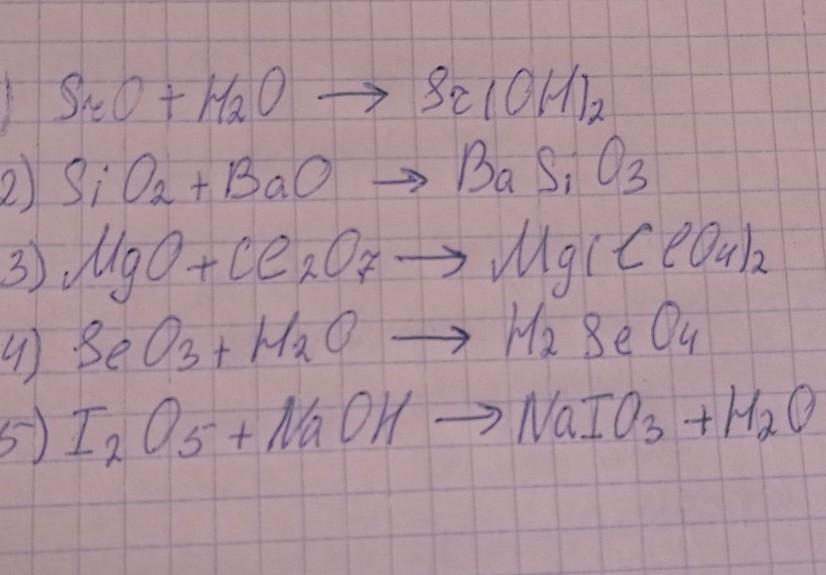 1) SrO + H2O → Sr(OH)2
2) SiO2 + BaO → BaSiO3
3) MgO + Cl2O7 → Mg(ClO4)2
4) SeO3 + H2O → H2SeO4
5) I2O5 + NaOH → NaIO3 + H2O